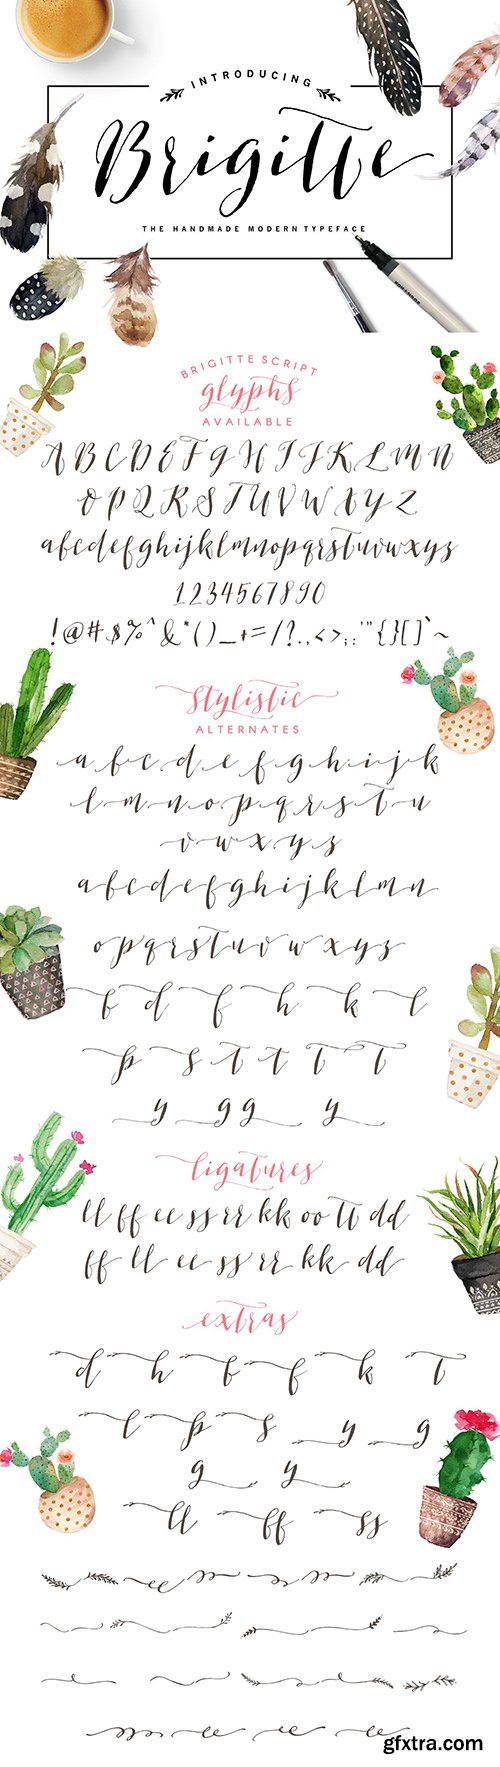 INTRODUCING
Brigitte
THE HANDMADE MODERN TYPEFACE
BRIGITTE SCRIPT
glyphs
AVAILABLE
A B C D E F G H I J K L M N
O P Q R S T U V W X Y Z
abcdefghijklmnopqrstuvwxyz
1234567890
!@#$%^&*()_+=/?.,<>;:'"{}[]`~
stylistic
ALTERNATES
a b c d e f g h i j k
l m n o p q r s t u
v w x y z
abcdefghijklmn
opqrstuvwxyz
b d f h k l
p s t t t t
y g g y
ligatures
ll ff ee ss rr kk oo tt dd
ff ll ee ss rr kk dd
extras
d h b f k t
l p s y g
g y
ll ff ss
gfxtra.com